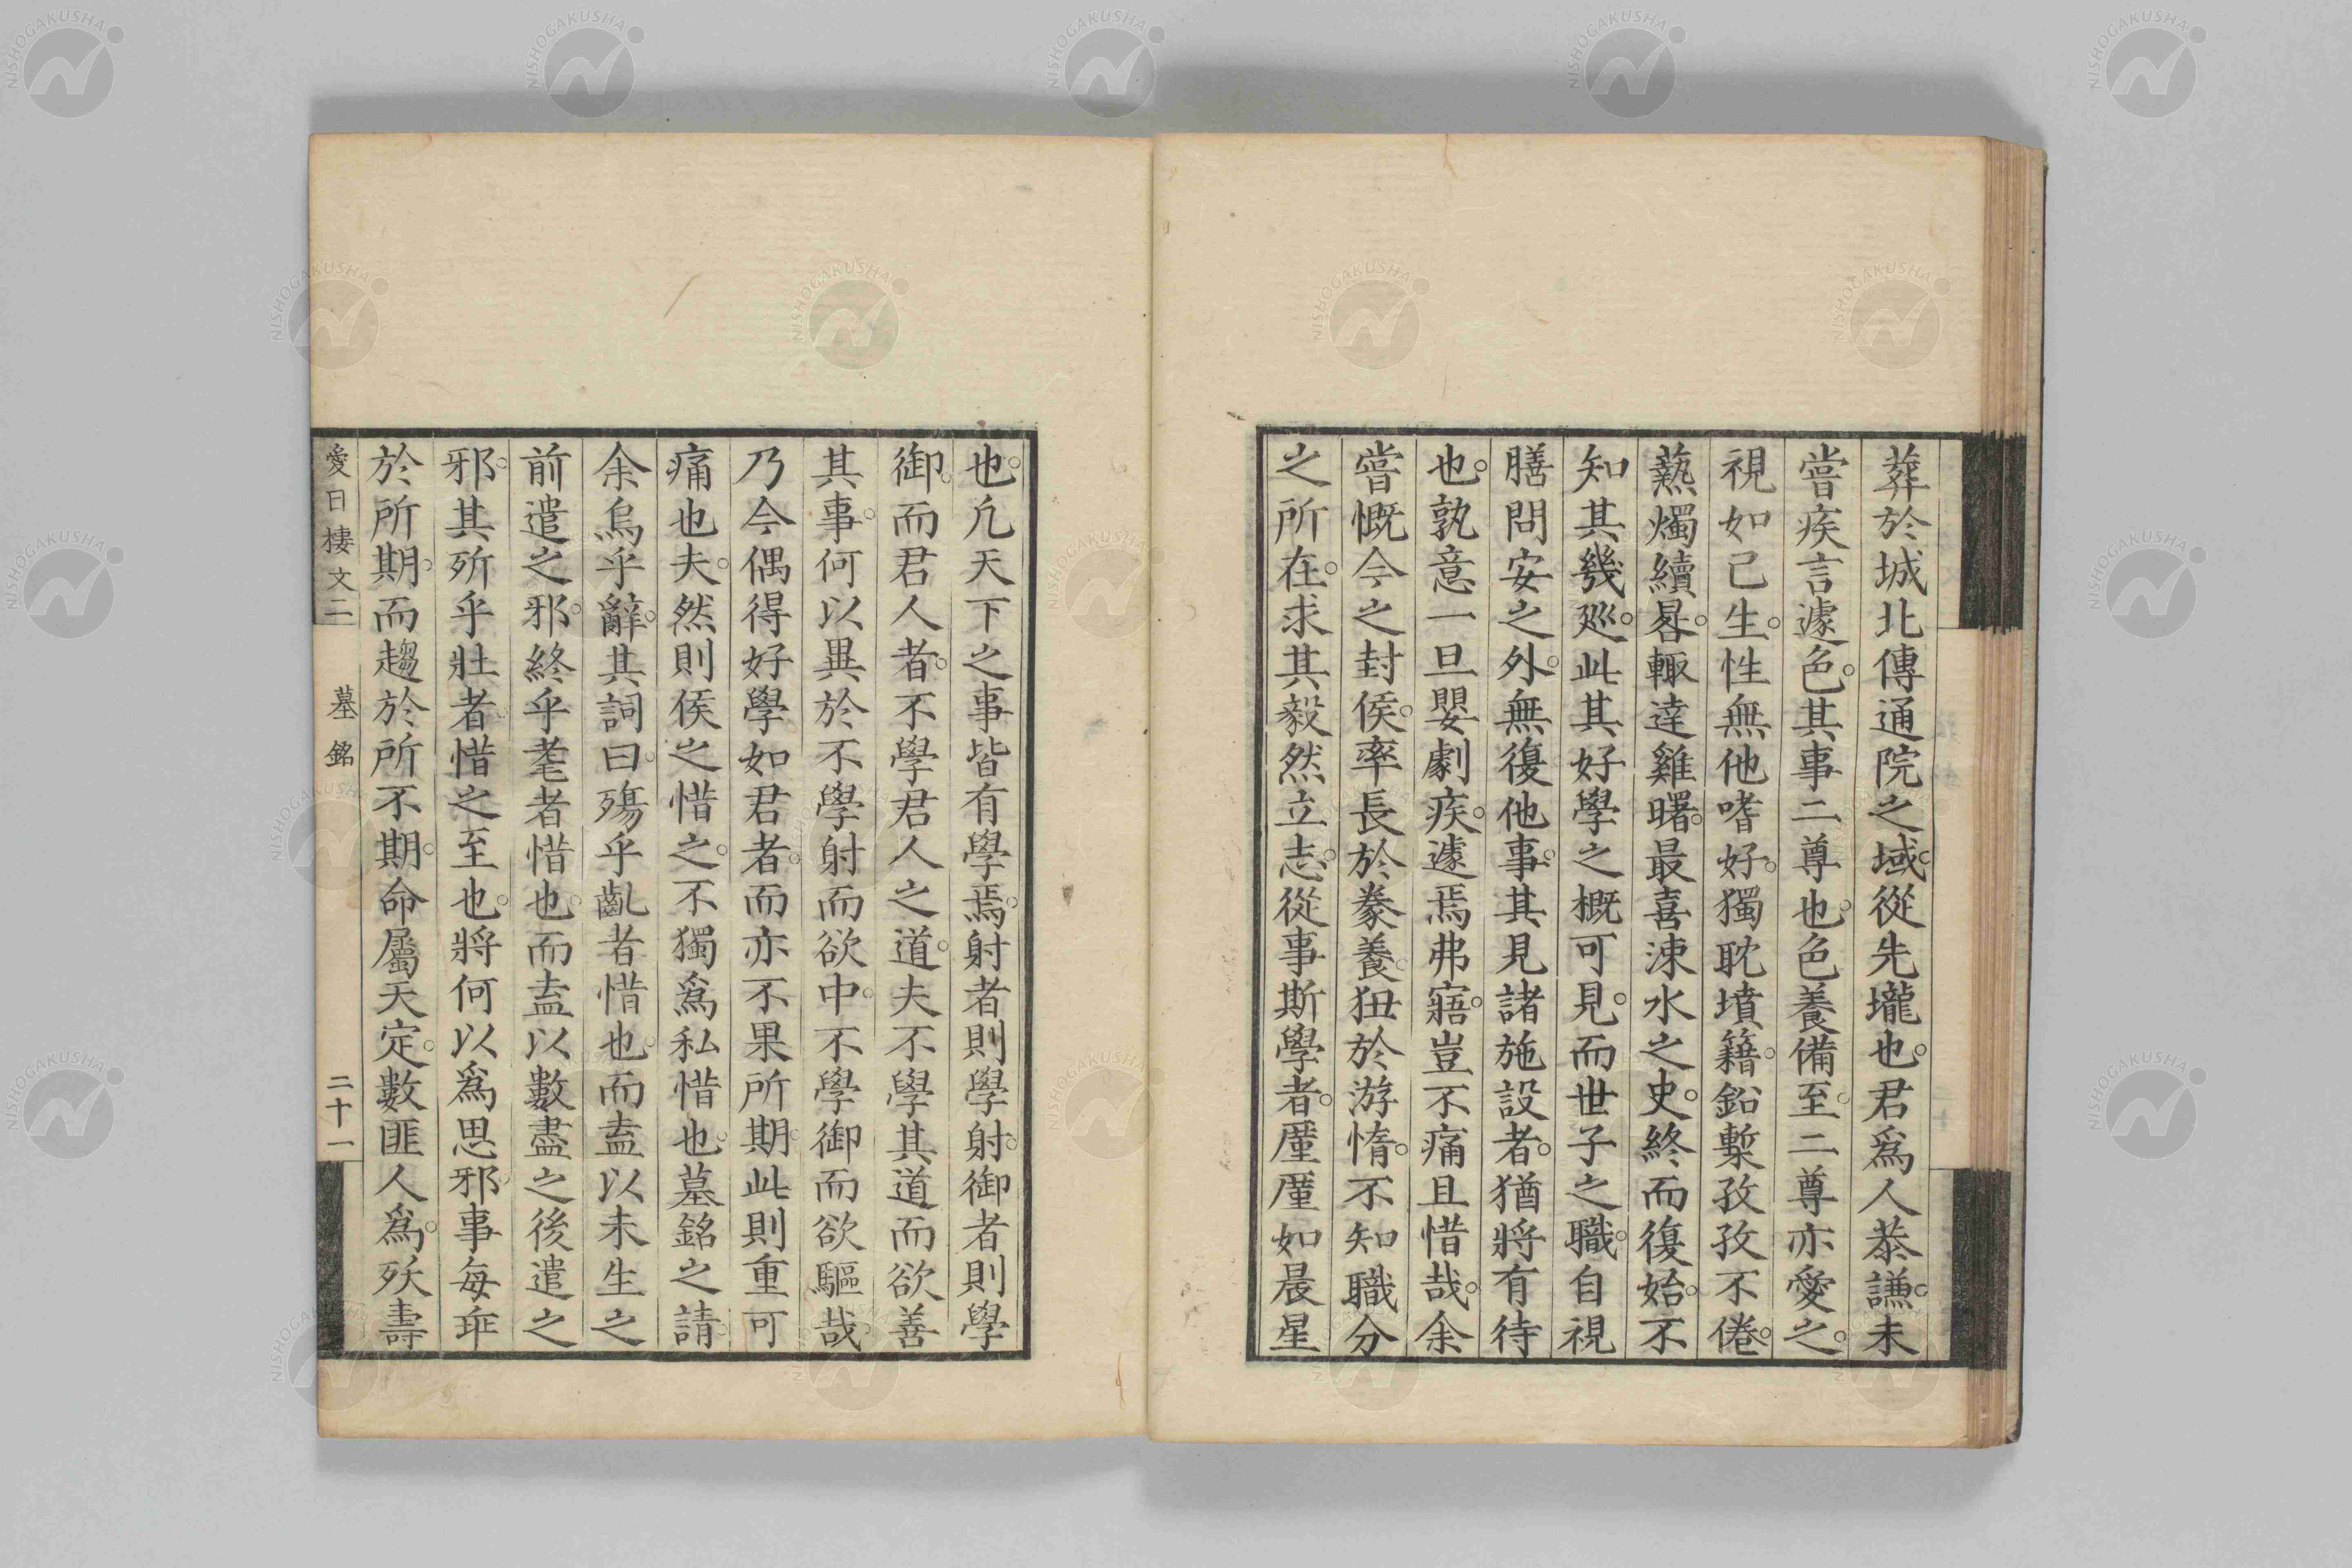 葬於城北傳通院之域。從先壠也。君爲人恭謙。未
嘗疾言遽色。其事二尊也。色養備至。二尊亦愛之。
視如己生。性無他嗜好。獨耽墳籍。鉛槧孜孜不倦。
爇燭續晷。輙達雞曙。最喜涑水之史。終而復始。不
知其幾廵。此其好學之槪可見。而世子之職。自視
膳問安之外。無復他事。其見諸施設者。猶將有待
也。孰意一旦嬰劇疾。遽焉弗寤。豈不痛且惜哉。余
嘗慨今之封侯。率長於豢養。狃於游惰。不知職分
之所在。求其毅然立志。從事斯學者。厪厪如晨星
也。凢天下之事皆有學焉。射者則學射。御者則學
御。而君人者。不學君人之道。夫不學其道而欲善
其事。何以異於不學射而欲中。不學御而欲驅哉。
乃今偶得好學如君者。而亦不果所期。此則重可
痛也夫。然則侯之惜之。不獨爲私惜也。墓銘之請
余烏乎辭。其詞曰。殤乎齓者惜也。而盍以未生之
前遣之邪。終乎耄者惜也。而盍以數盡之後遣之
邪。其所乎壯者。惜之至也。將何以爲思邪。事每乖
於所期。而趨於所不期。命屬天定。數匪人爲。殀壽
愛日樓文二 墓銘 二十一
NISHOGAKUSHA